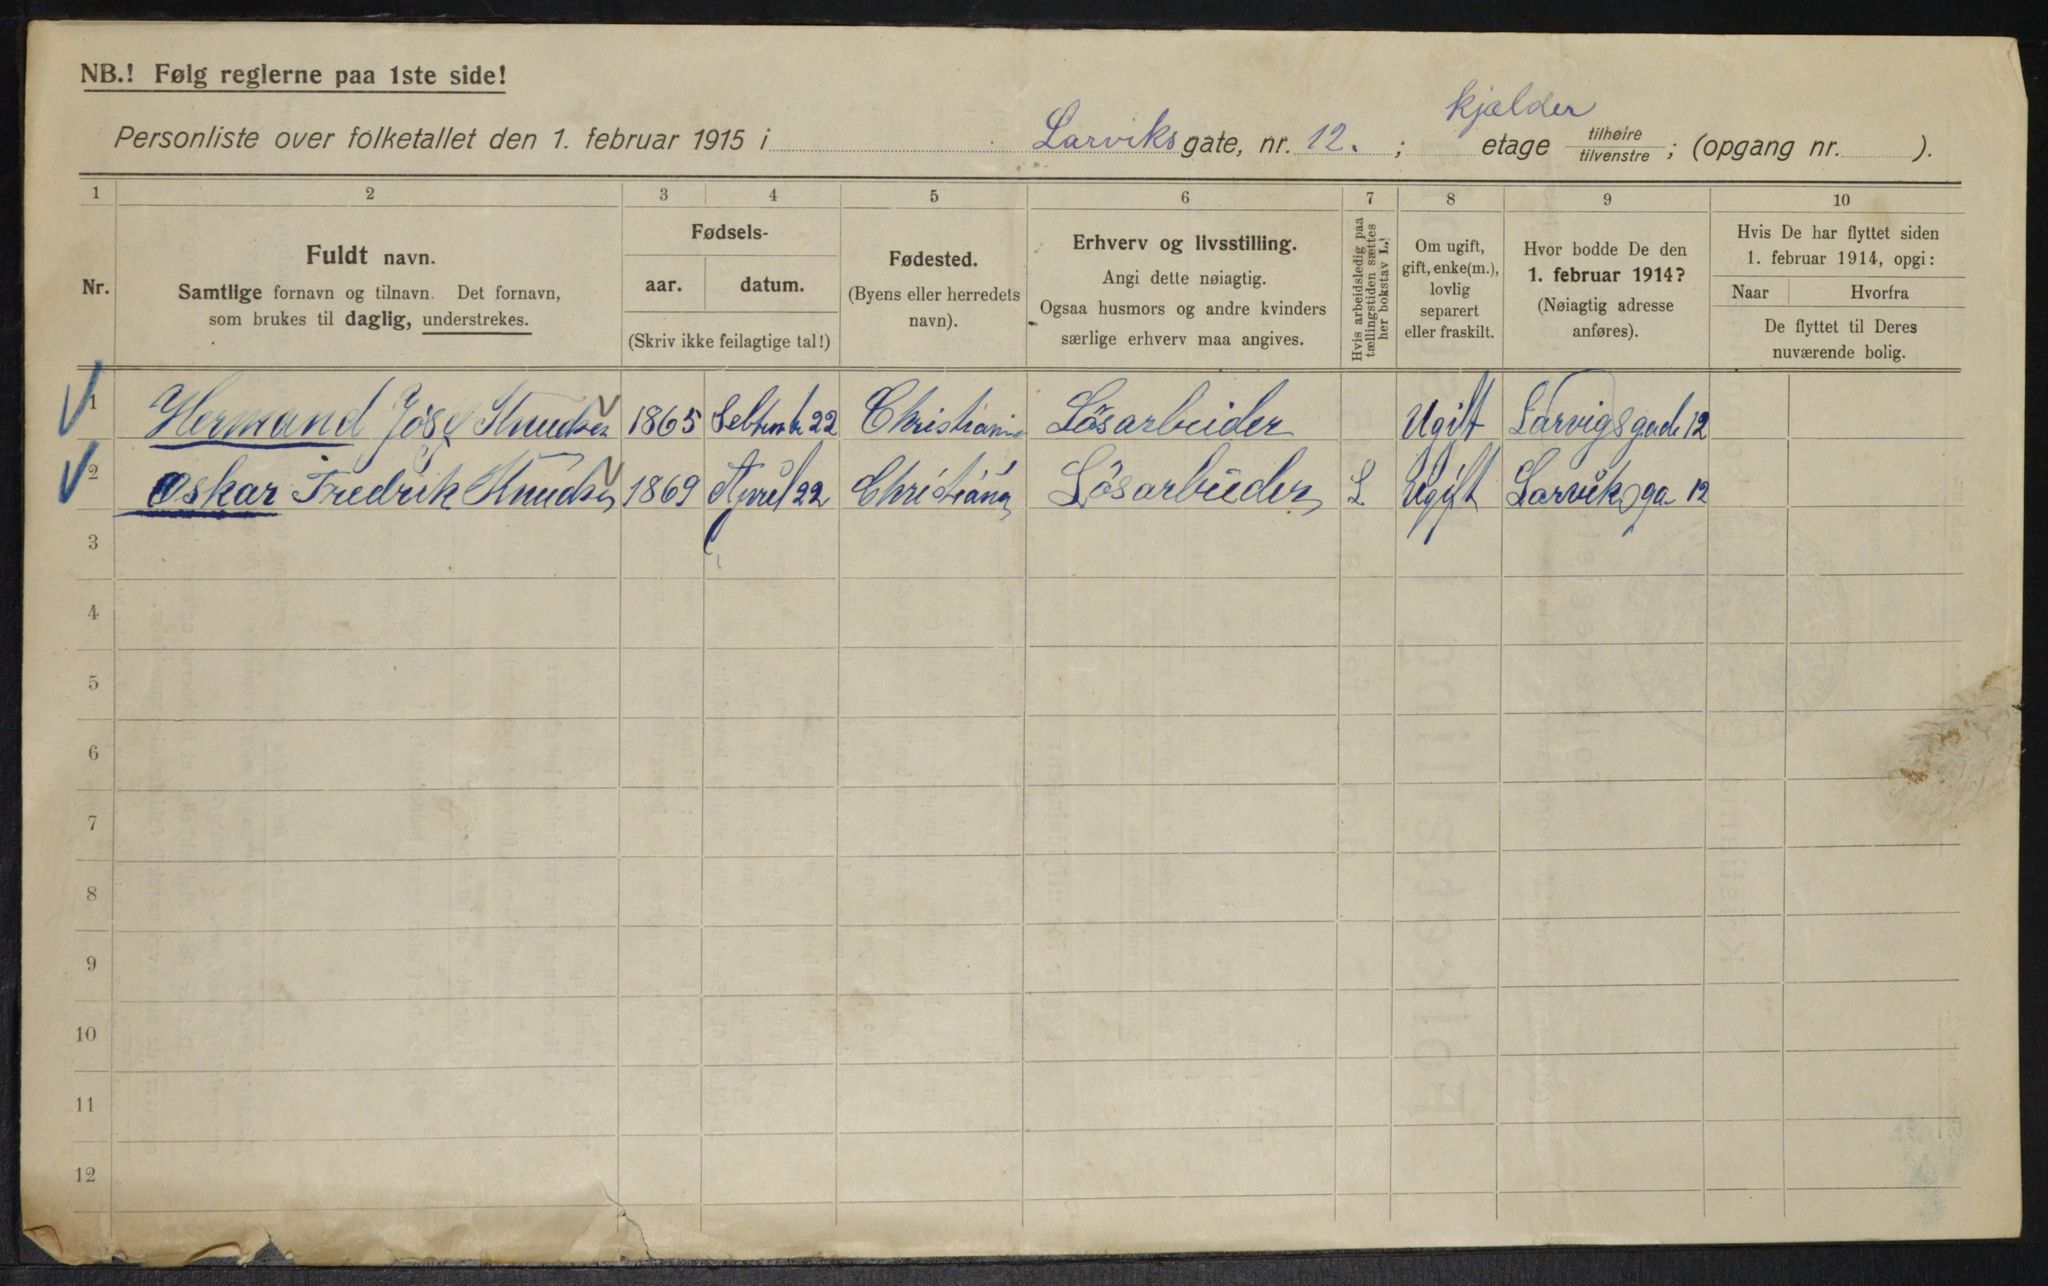 NB.! Følg reglerne paa 1ste side!
kjælder
Personliste over folketallet den 1. februar 1915 i Larviks gate, nr. 12. ; etage tilhøire / tilvenstre ; (opgang nr. ).
1 2 3 4 5 6 7 8 9 10
Nr.
Fuldt navn.
Samtlige fornavn og tilnavn. Det fornavn,
som brukes til daglig, understrekes.
Fødsels-
aar. datum.
(Skriv ikke feilagtige tal!)
Fødested.
(Byens eller herredets
navn).
Erhverv og livsstilling.
Angi dette nøiagtig.
Ogsaa husmors og andre kvinders
særlige erhverv maa angives.
Hvis arbeidsledig paa
tællingstiden sættes
her bokstav L.!
Om ugift,
gift, enke(m.),
lovlig
separert
eller fraskilt.
Hvor bodde De den
1. februar 1914?
(Nøiagtig adresse
anføres).
Hvis De har flyttet siden
1. februar 1914, opgi:
Naar Hvorfra
De flyttet til Deres
nuværende bolig.
1 Hermand Josef Knudsen 1865 22 Christiania Lösarbeider Ugift Larvigsgade 12
2 Oskar Fredrik Knudsen 1869 April 22 Christiania Lösarbeider L Ugift Larviksga 12
3
4
5
6
7
8
9
10
11
12